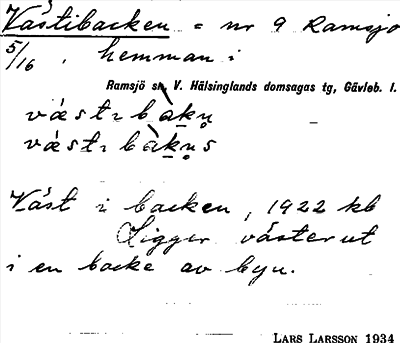 Västibacken = nr 9 Ramsjö
5/16, hemman i
Ramsjö sn, V. Hälsinglands domsagas tg, Gävleb. l.
västɩbàkn̥
västɩbàkn̥s
Väst i backen, 1922 kb
Ligger västerut
i en backe av byn.
LARS LARSSON 1934